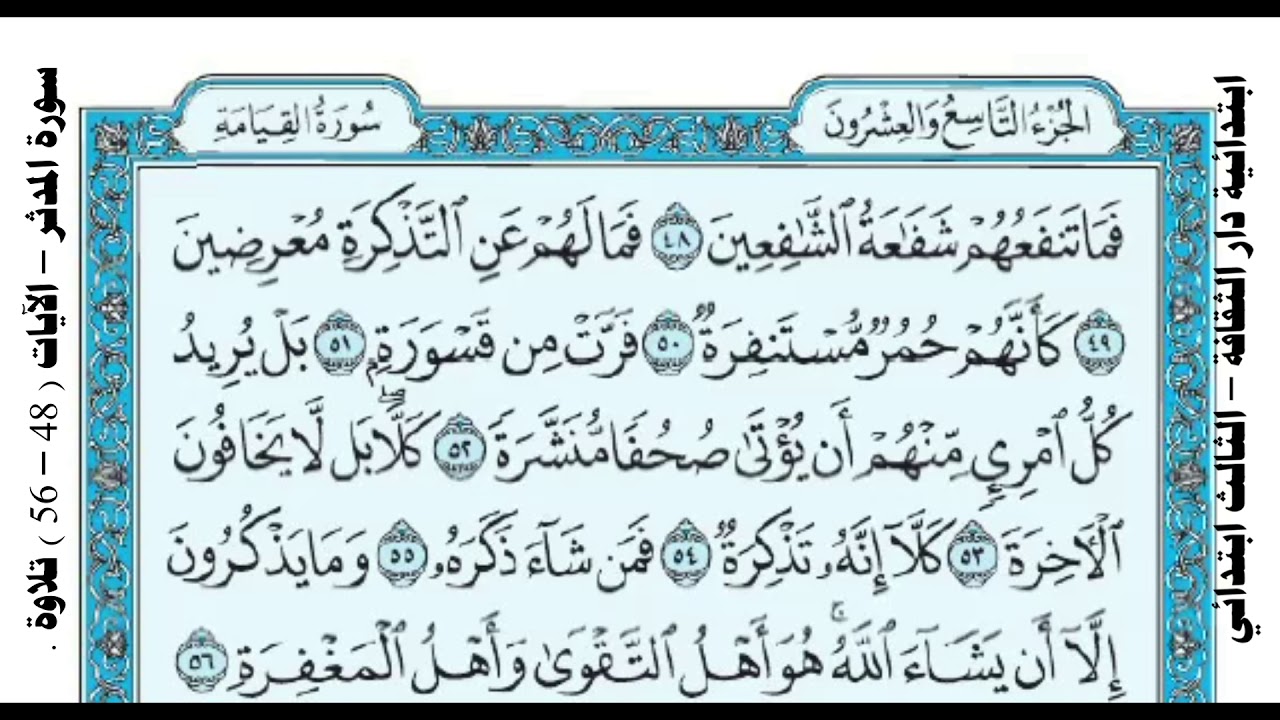 ابتدائية دار الثقافة – الثالث ابتدائي
سورة المدثر – الآيات ( 48 – 56 ) تلاوة .
الجُزْءُ التَّاسِعُ وَالعِشْرُونَ
سُورَةُ القِيَامَةِ
فَمَا تَنفَعُهُمْ شَفَٰعَةُ ٱلشَّٰفِعِينَ ٤٨ فَمَا لَهُمْ عَنِ ٱلتَّذْكِرَةِ مُعْرِضِينَ
٤٩ كَأَنَّهُمْ حُمُرٌ مُّسْتَنفِرَةٌ ٥٠ فَرَّتْ مِن قَسْوَرَةٍۭ ٥١ بَلْ يُرِيدُ
كُلُّ ٱمْرِئٍ مِّنْهُمْ أَن يُؤْتَىٰ صُحُفًا مُّنَشَّرَةً ٥٢ كَلَّاۖ بَل لَّا يَخَافُونَ
ٱلْأٓخِرَةَ ٥٣ كَلَّآ إِنَّهُۥ تَذْكِرَةٌ ٥٤ فَمَن شَآءَ ذَكَرَهُۥ ٥٥ وَمَا يَذْكُرُونَ
إِلَّآ أَن يَشَآءَ ٱللَّهُۚ هُوَ أَهْلُ ٱلتَّقْوَىٰ وَأَهْلُ ٱلْمَغْفِرَةِ ٥٦